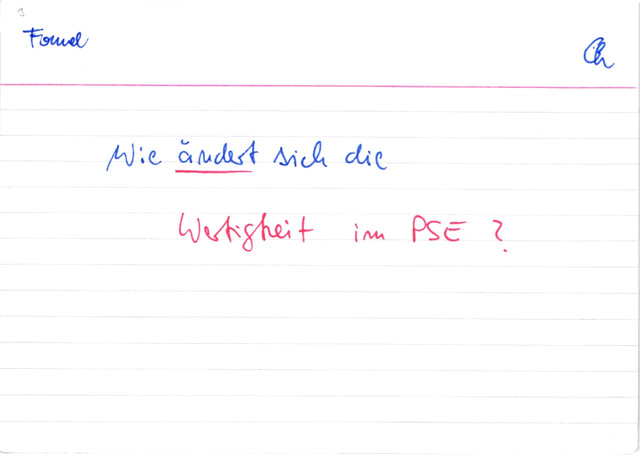 Formel
Ch
Wie ändert sich die
Wertigkeit im PSE ?